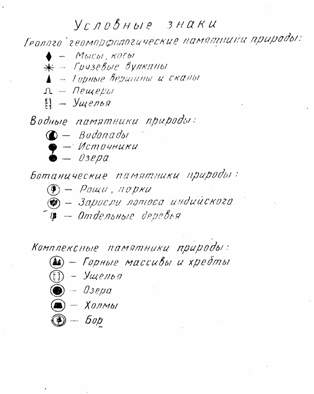 Условные знаки
Геолого-геоморфологические памятники природы:
— Мысы, косы
— Грязевые вулканы
— Горные вершины и скалы
— Пещеры
— Ущелья
Водные памятники природы:
— Водопады
— Источники
— Озера
Ботанические памятники природы:
— Рощи, парки
— Заросли лотоса индийского
— Отдельные деревья
Комплексные памятники природы:
— Горные массивы и хребты
— Ущелья
— Озера
— Холмы
— Бор